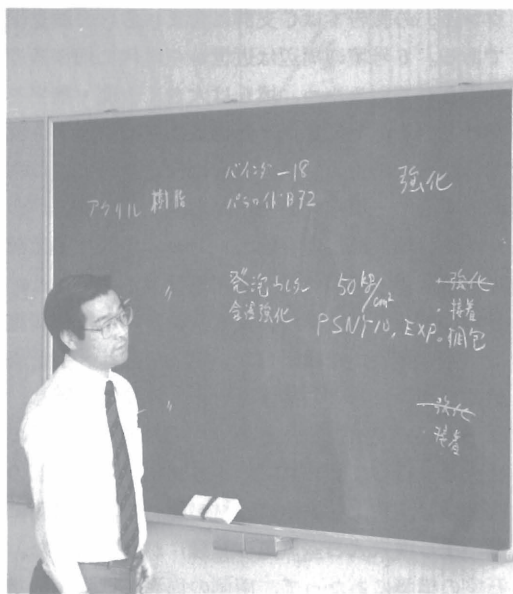 バインダー18 強化
アクリル樹脂 パラロイドB72
〃 発泡ウレタン 50kg/cm² 強化
・接着
合溶強化 PSNY10, EXP. 梱包
〃 強化
・接着